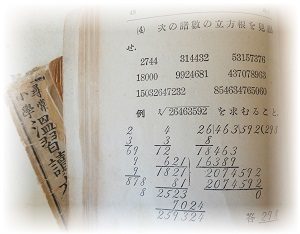 (4) 次の諸數の立方根を見出
せ.
2744 314432 53157376
18000 9924681 437078963
15032647232 854634765060
例 ∛26463592 を求むること.
2 4 26463592(298
3 3 8
69 12 18463
9 621 16389
9 1821 2074592
878 81 2074592
8 2523 0
7024
259324 答 298
尋常
小學
溫習讀